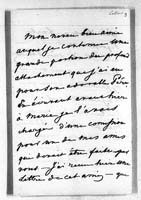 Mon neveu bien aimé
auquel je conserve une
grande portion du profond
attachement que j'ai eu
pour son adorable Père
En écrivant avant hier
à Marie je l'avais
chargé d'une commission
pour un de mes amis
qui devait être faite par
vous. J'ai reçu hier une
lettre de cet ami, q